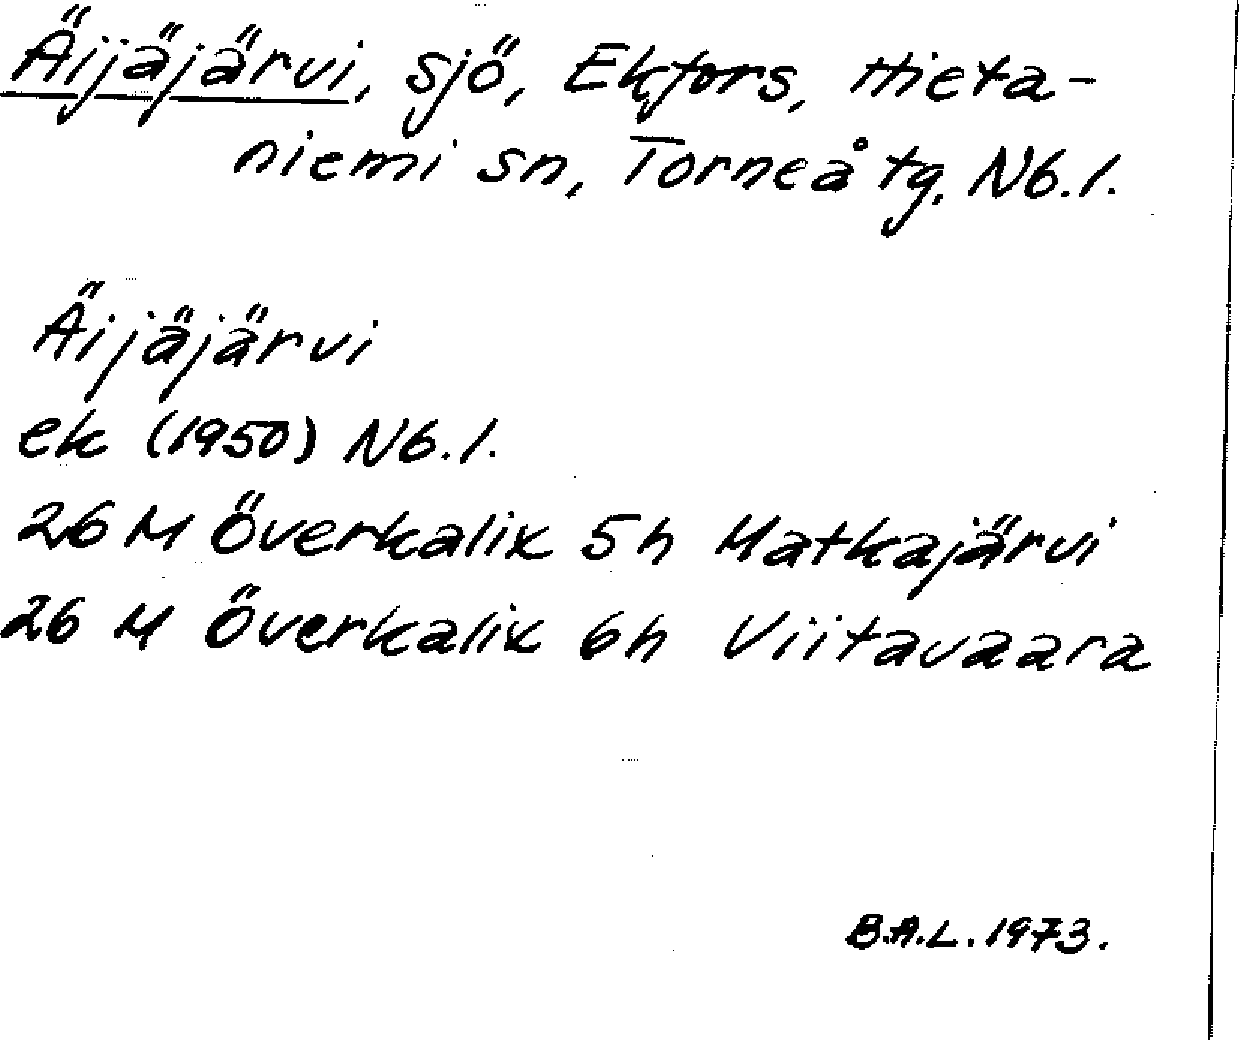 Äijäjärvi, sjö, Ekfors, Hieta-
niemi sn, Torneå tg, Nb. l.
Äijäjärvi
ek (1950) Nb. l.
26 M Överkalix 5h Matkajärvi
26 M Överkalix 6h Viitavaara
B.A.L. 1973.